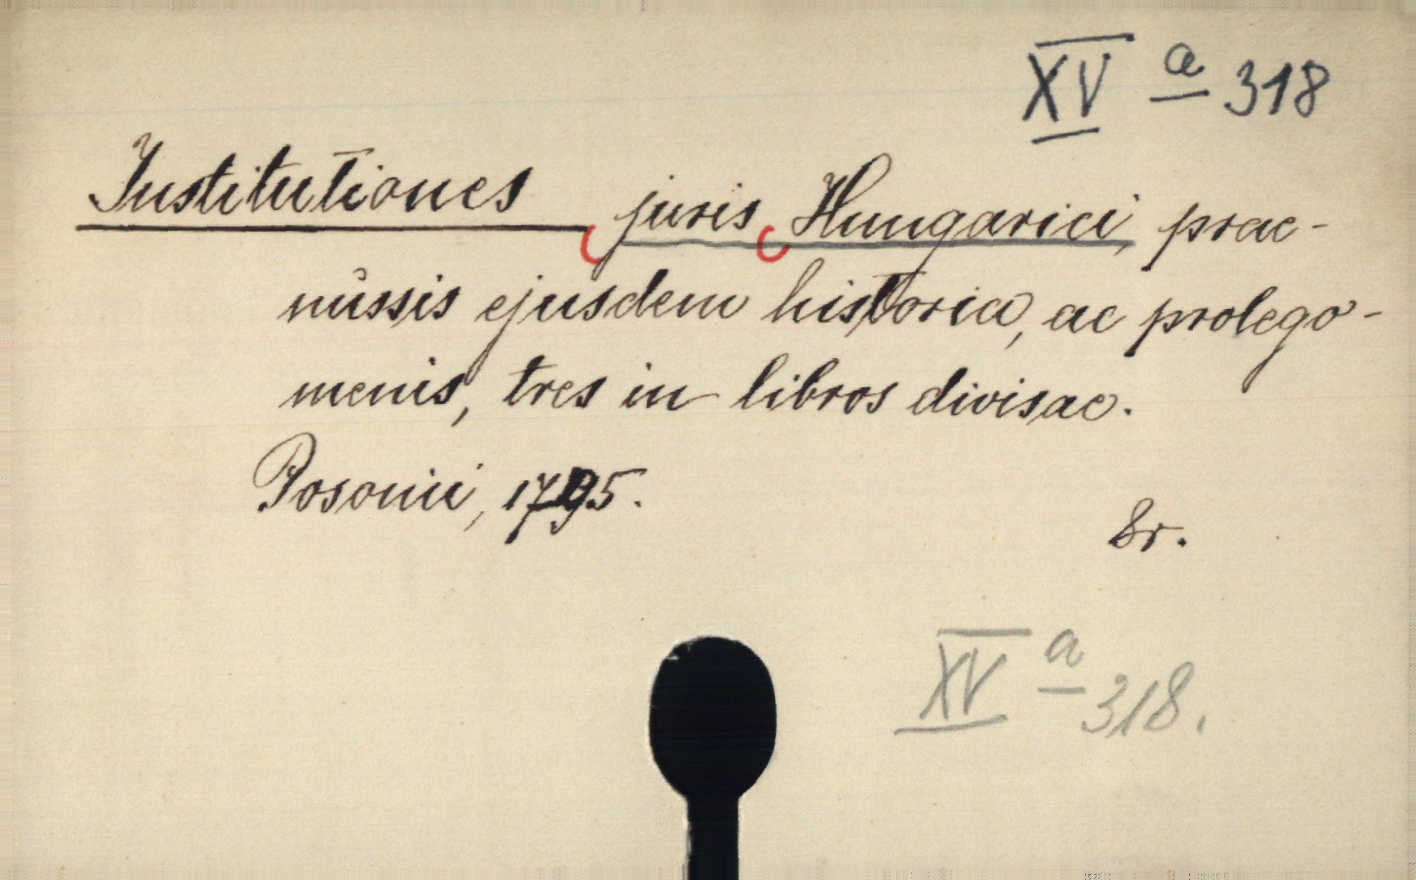 XV a 318
Institutiones juris Hungarici, prae-
missis ejusdem historia, ac prolego-
menis, tres in libros divisae.
Posonii, 1795.
8r.
XV a 318.